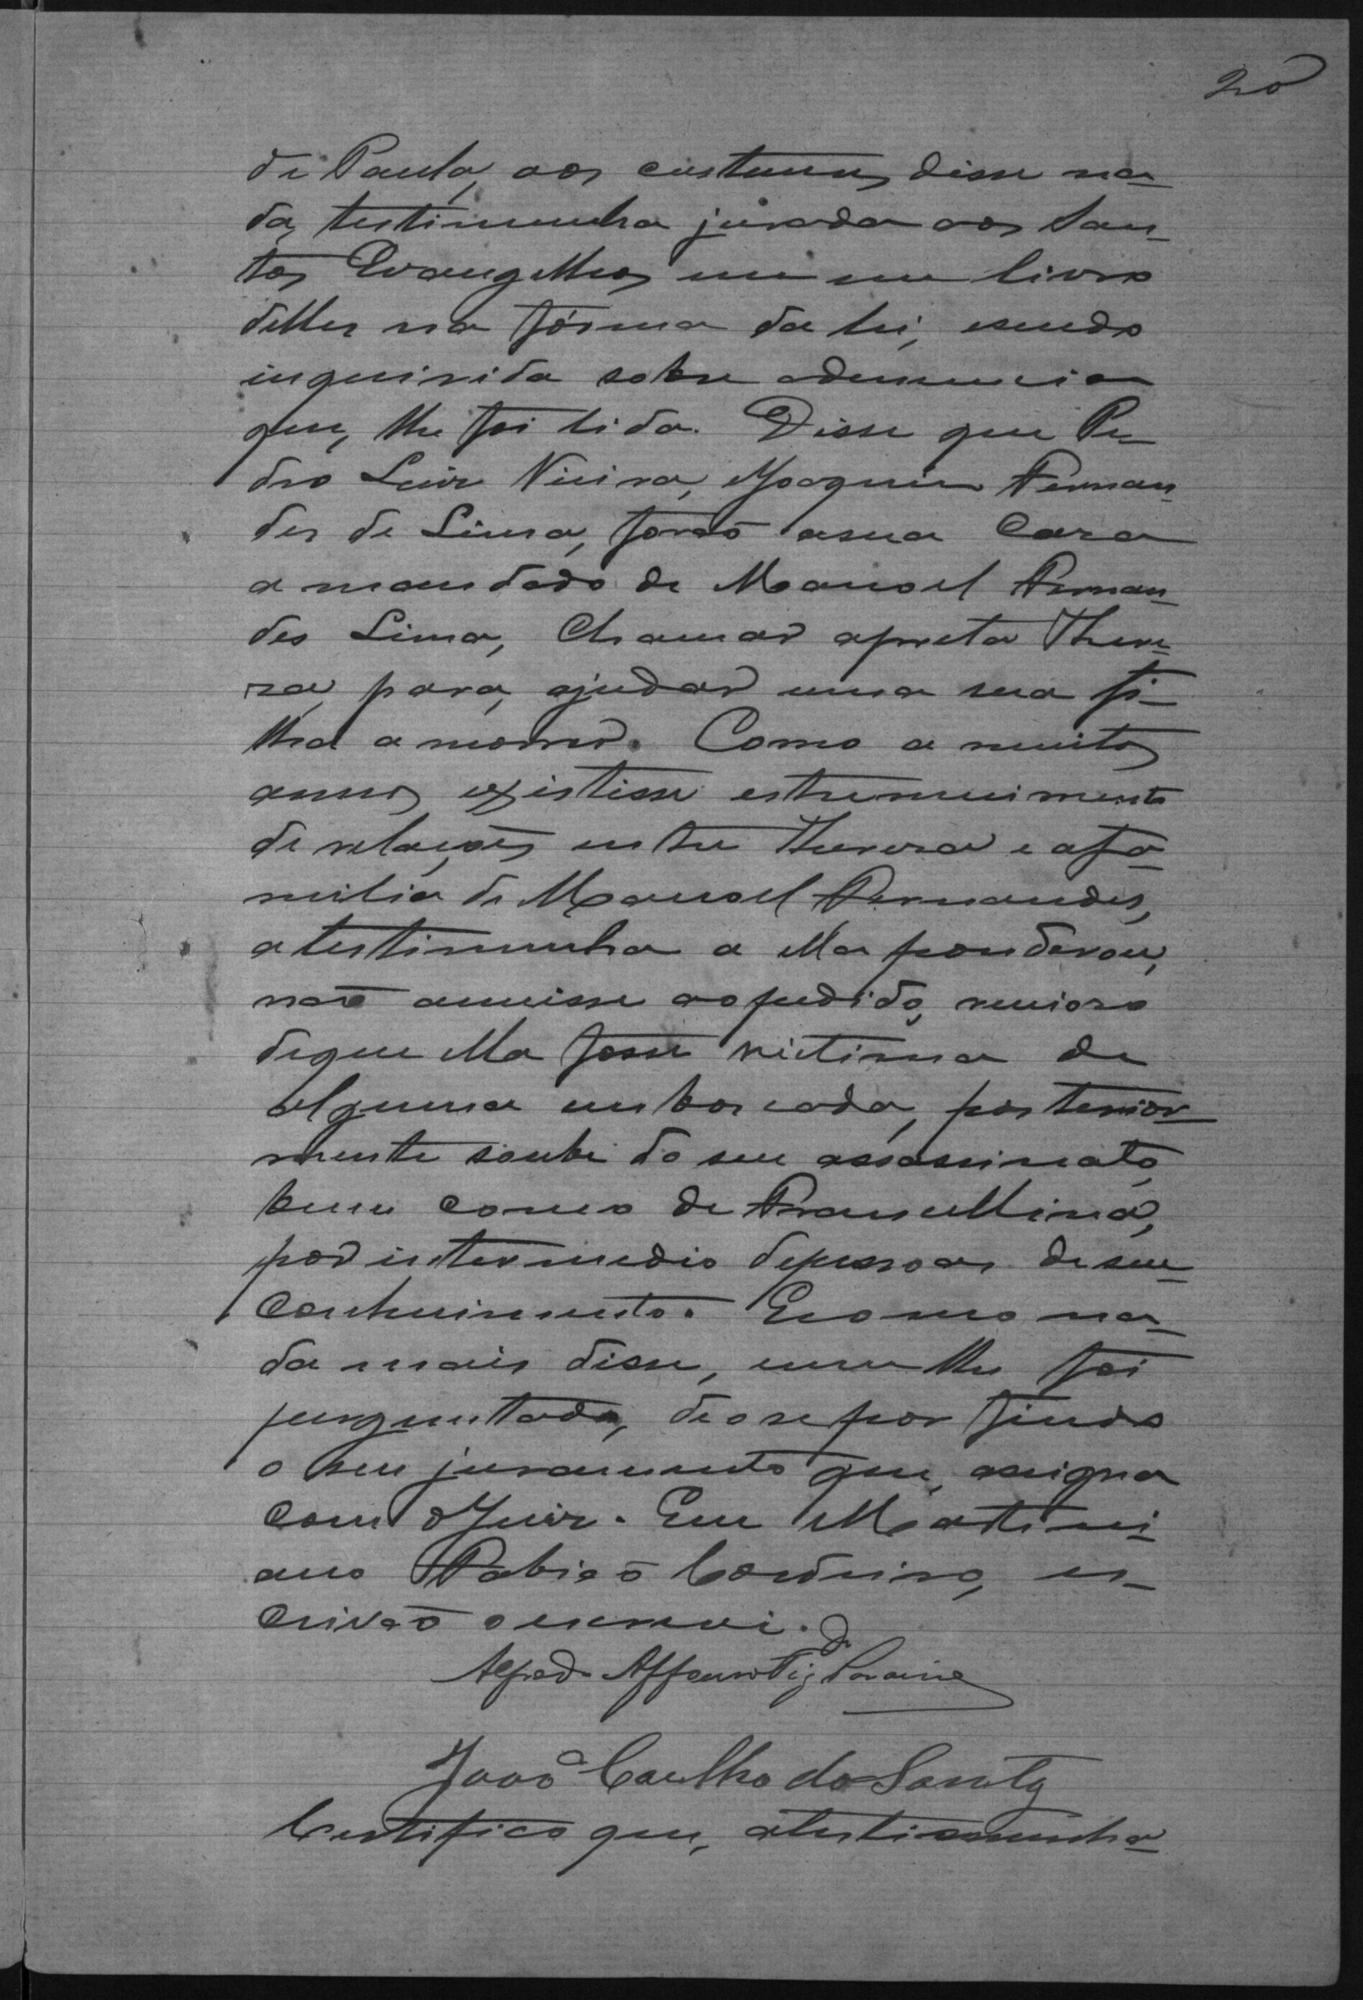 20
de Paula, aos custumes disse na-
da, testimunha jurada aos San-
tos Evangelhos em um livro
delles na fórma da lei, esendo
inquirida sobre adenuncia
que, lhe foi lida. Disse que Pe-
dro Luiz Vieira, eJoaquim Fernan-
des de Lima, forão asua Caza
a mandado de Manoel Fernan-
des Lima, Chamar apreta There-
za, para, ajudar uma sua fi-
lha a morrer. Como a muitos
annos existisse estremecimento
de relações entre Thereza e afa-
milia de Manoel Fernandes,
atestimunha a ella ponderou,
não annuisse aopedido, receioso
deque ella fosse victima de
alguma emboscada, posterior-
mente soube do seu assassinato,
bem como de Francellina,
por intermedio depessoas de seu
Conhecimento. Ecomo na-
da mais disse, nem lhe foi
perguntado, deose por findo
o seu juramento que, assigna
com oJuiz. Eu Martini-
ano Fabião Cordeiro, es-
crivão oescrevi.
Alfredo Affonso
João Coelho dos Santos
Certifico que, atestimunha